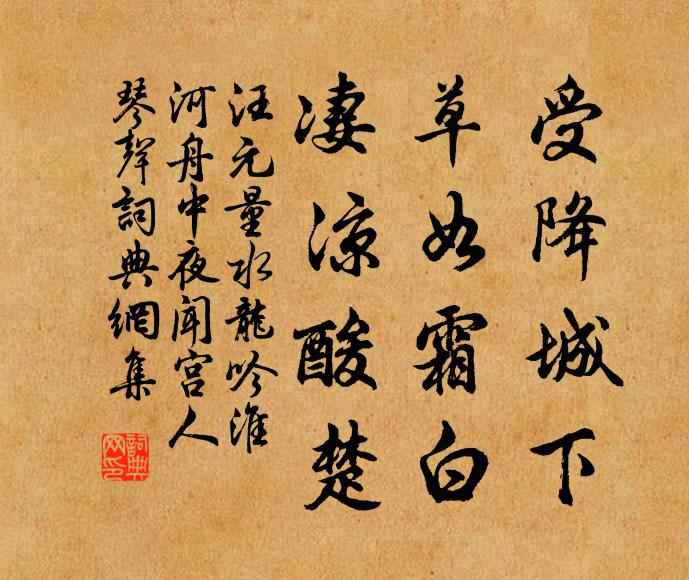 受降城下
草如霜白
凄涼酸楚
汪元量水龍吟淮
河舟中夜聞宮人
琴聲詞典網集
詞典
网印